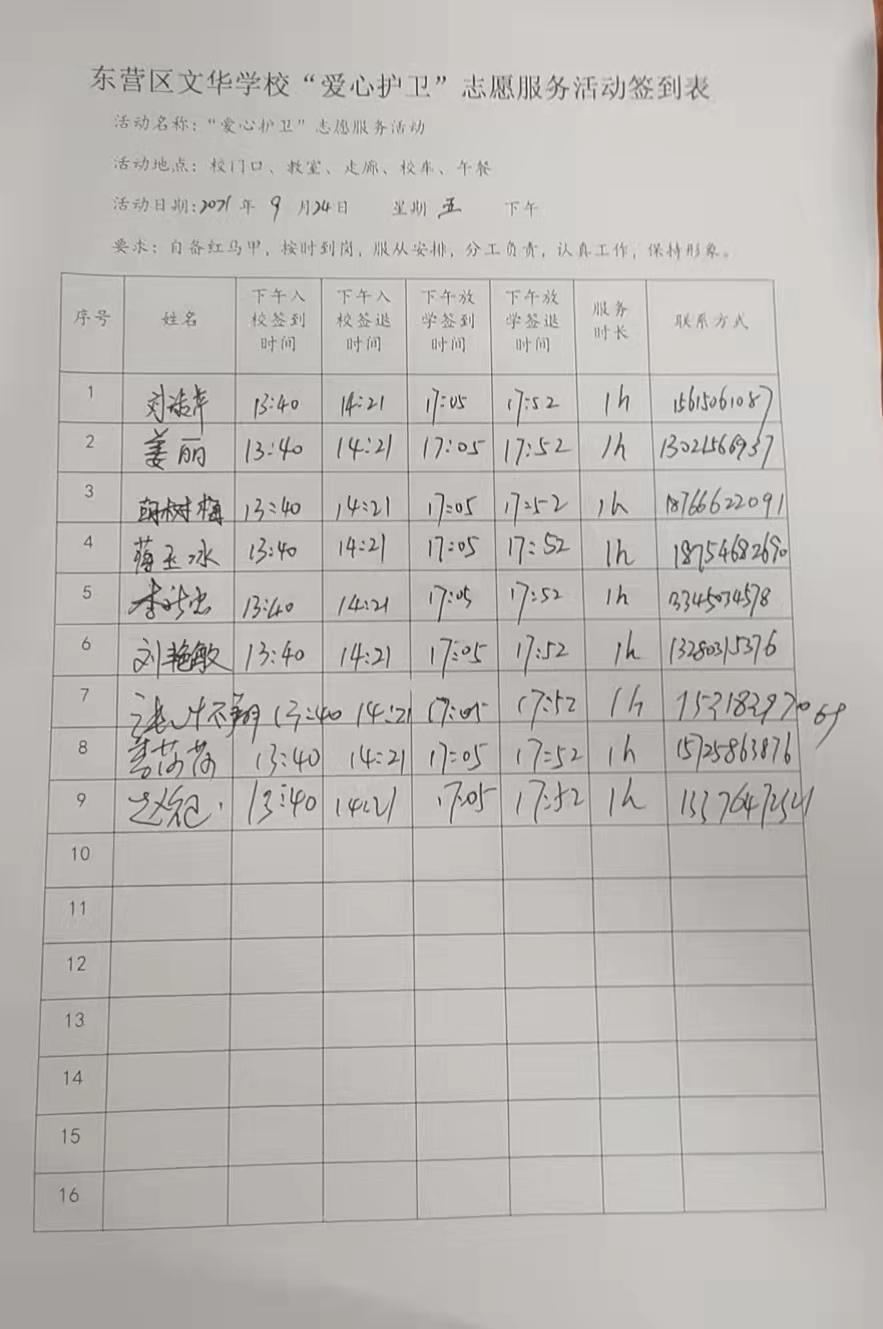 东营区文华学校“爱心护卫”志愿服务活动签到表
活动名称：“爱心护卫”志愿服务活动
活动地点：校门口、教室、走廊、校车、午餐
活动日期：2021年 9 月24日 星期 五 下午
要求：自备红马甲，按时到岗，服从安排，分工负责，认真工作，保持形象。
序号 姓名 下午入校签到时间 下午入校签退时间 下午放学签到时间 下午放学签退时间 服务时长 联系方式
1 13:40 14:21 17:05 17:52 1h 15615061087
2 姜丽 13:40 14:21 17:05 17:52 1h
3 13:40 14:21 17:05 17:52 1h 18766622091
4 13:40 14:21 17:05 17:52 1h 18754682690
5 13:40 14:21 17:05 17:52 1h
6 刘艳敏 13:40 14:21 17:05 17:52 1h 13280315376
7 13:40 14:21 17:05 17:52 1h 15318397069
8 13:40 14:21 17:05 17:52 1h 15725863876
9 13:40 14:21 17:05 17:52 1h
10
11
12
13
14
15
16